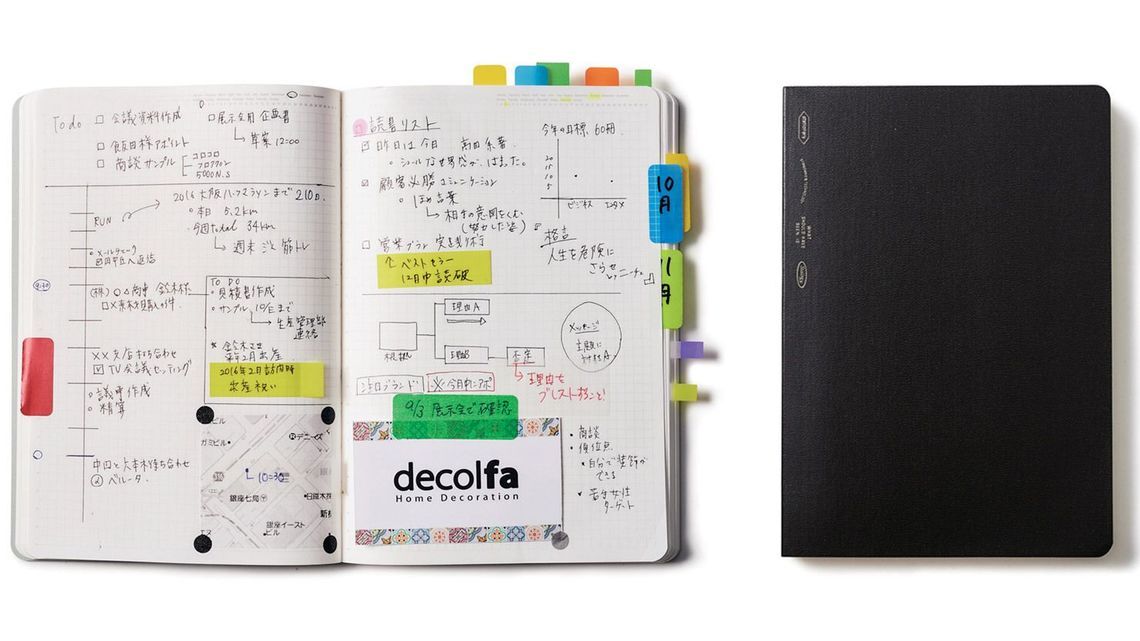 To do
□ 会議資料作成
□ 展示会用 企画書
↳ 草案 12:00
□ 飯田様アポイント
□ 商談サンプル
コロコロ
フロアラン
5000N.S
2016 大阪ハーフマラソンまで 210日.
RUN
○本日 5.2km
○今週total 34km
↳ 週末 渋 筋トレ
8:30
TO DO
○見積書作成
○サンプル 10/Eまで
↳ 生産管理部
連絡
××支店打ち合わせ
☑ TV会議セッティング
○議事作成
○精算
2016年2月訪問時
出産祝い
ビル
ガミビル
デニーズ
10=30
銀座七局
日産
銀座イースト
ビル
読書リスト
☑ 昨日は今日
☑ 顧客必勝コミュニケーション
○ほめ言葉
↳ 相手の意図をくむ
↑ ベストセラー
12日中読破
今年の目標 60冊.
20
15
10
5
ビジネス
格言
人生を危険に
さらせ
ニーチェ
10月
11月
理由A
理由B
否定
理由を
ブレストすること!
メッセージ
9/3 展示会で確認
decolfa
Home Decoration
・商談
・優位点
・自分で装飾が
できる
・若手女性
ターゲット
中田と六本木待ち合わせ
② ベルータ.